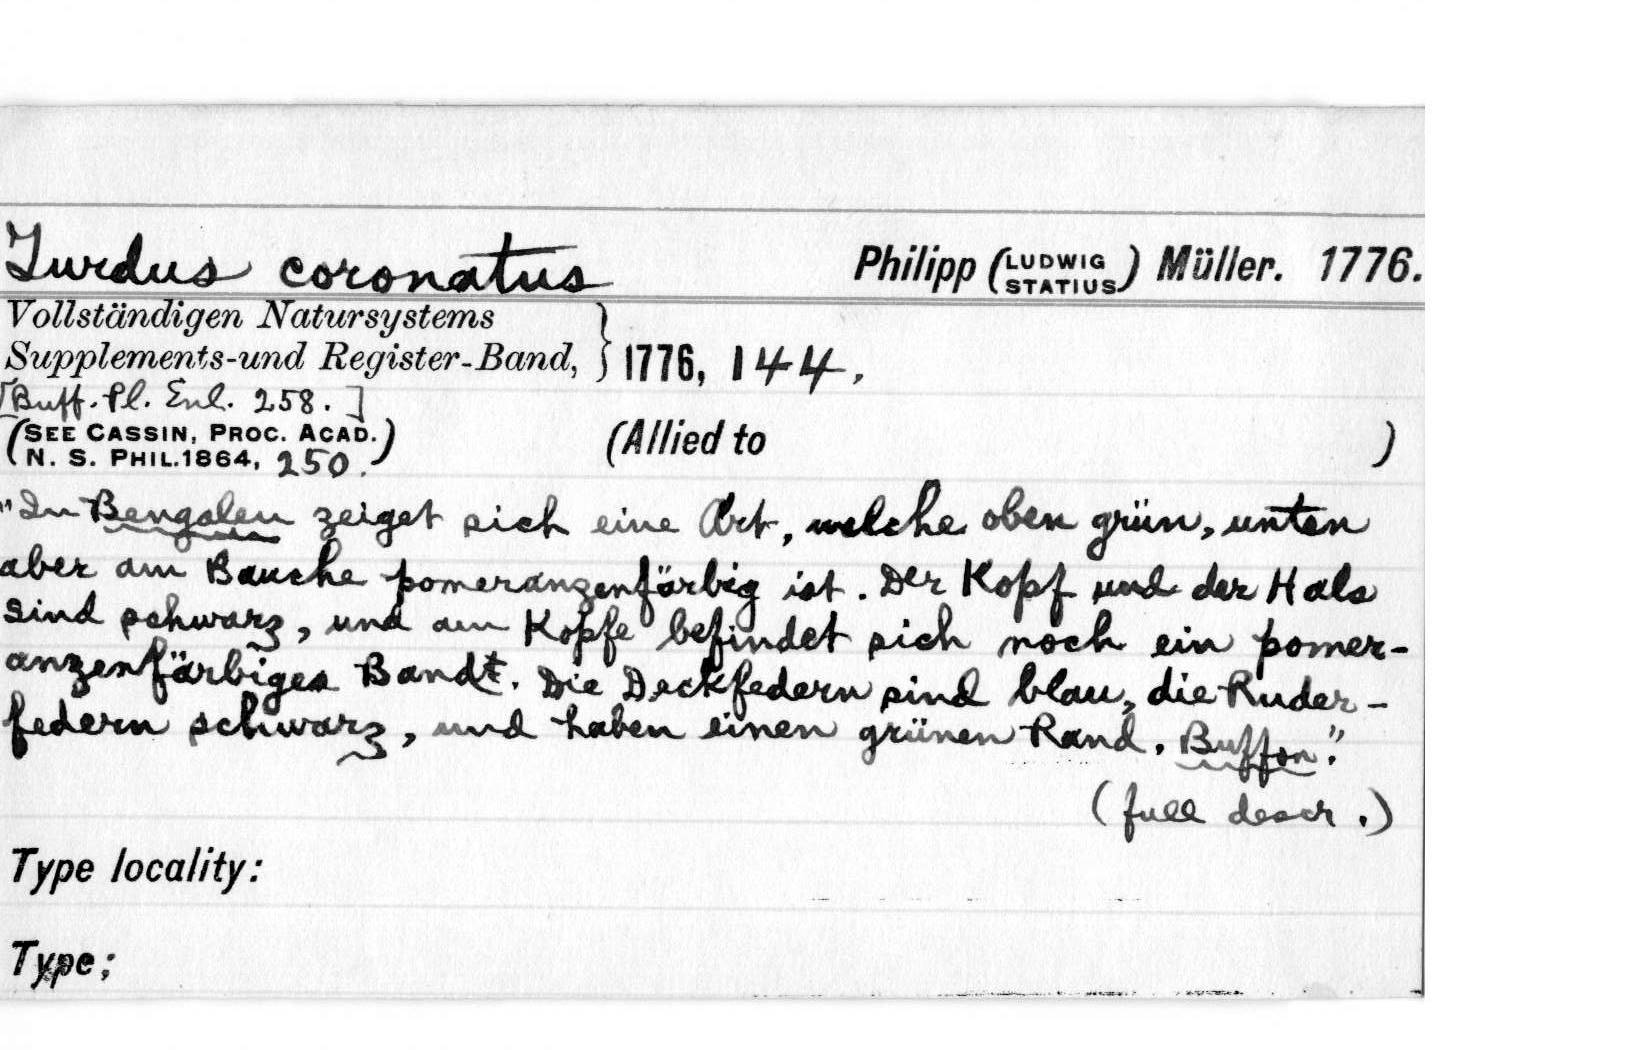 Turdus coronatus Philipp (LUDWIG STATIUS) Müller. 1776.
Vollständigen Natursystems
Supplements-und Register-Band, } 1776, 144.
[Buff. Pl. Enl. 258.]
(SEE CASSIN, PROC. ACAD. (Allied to )
N. S. PHIL. 1864, 250.)
"In Bengalen zeiget sich eine Art, welche oben grün, unten
aber am Bauche pomeranzenfärbig ist. Der Kopf und der Hals
sind schwarz, und am Kopfe befindet sich noch ein pomer-
anzenfärbiges Bandt. Die Deckfedern sind blau, die Ruder-
federn schwarz, und haben einen grünen Rand. Buffon."
(full descr.)
Type locality:
Type;